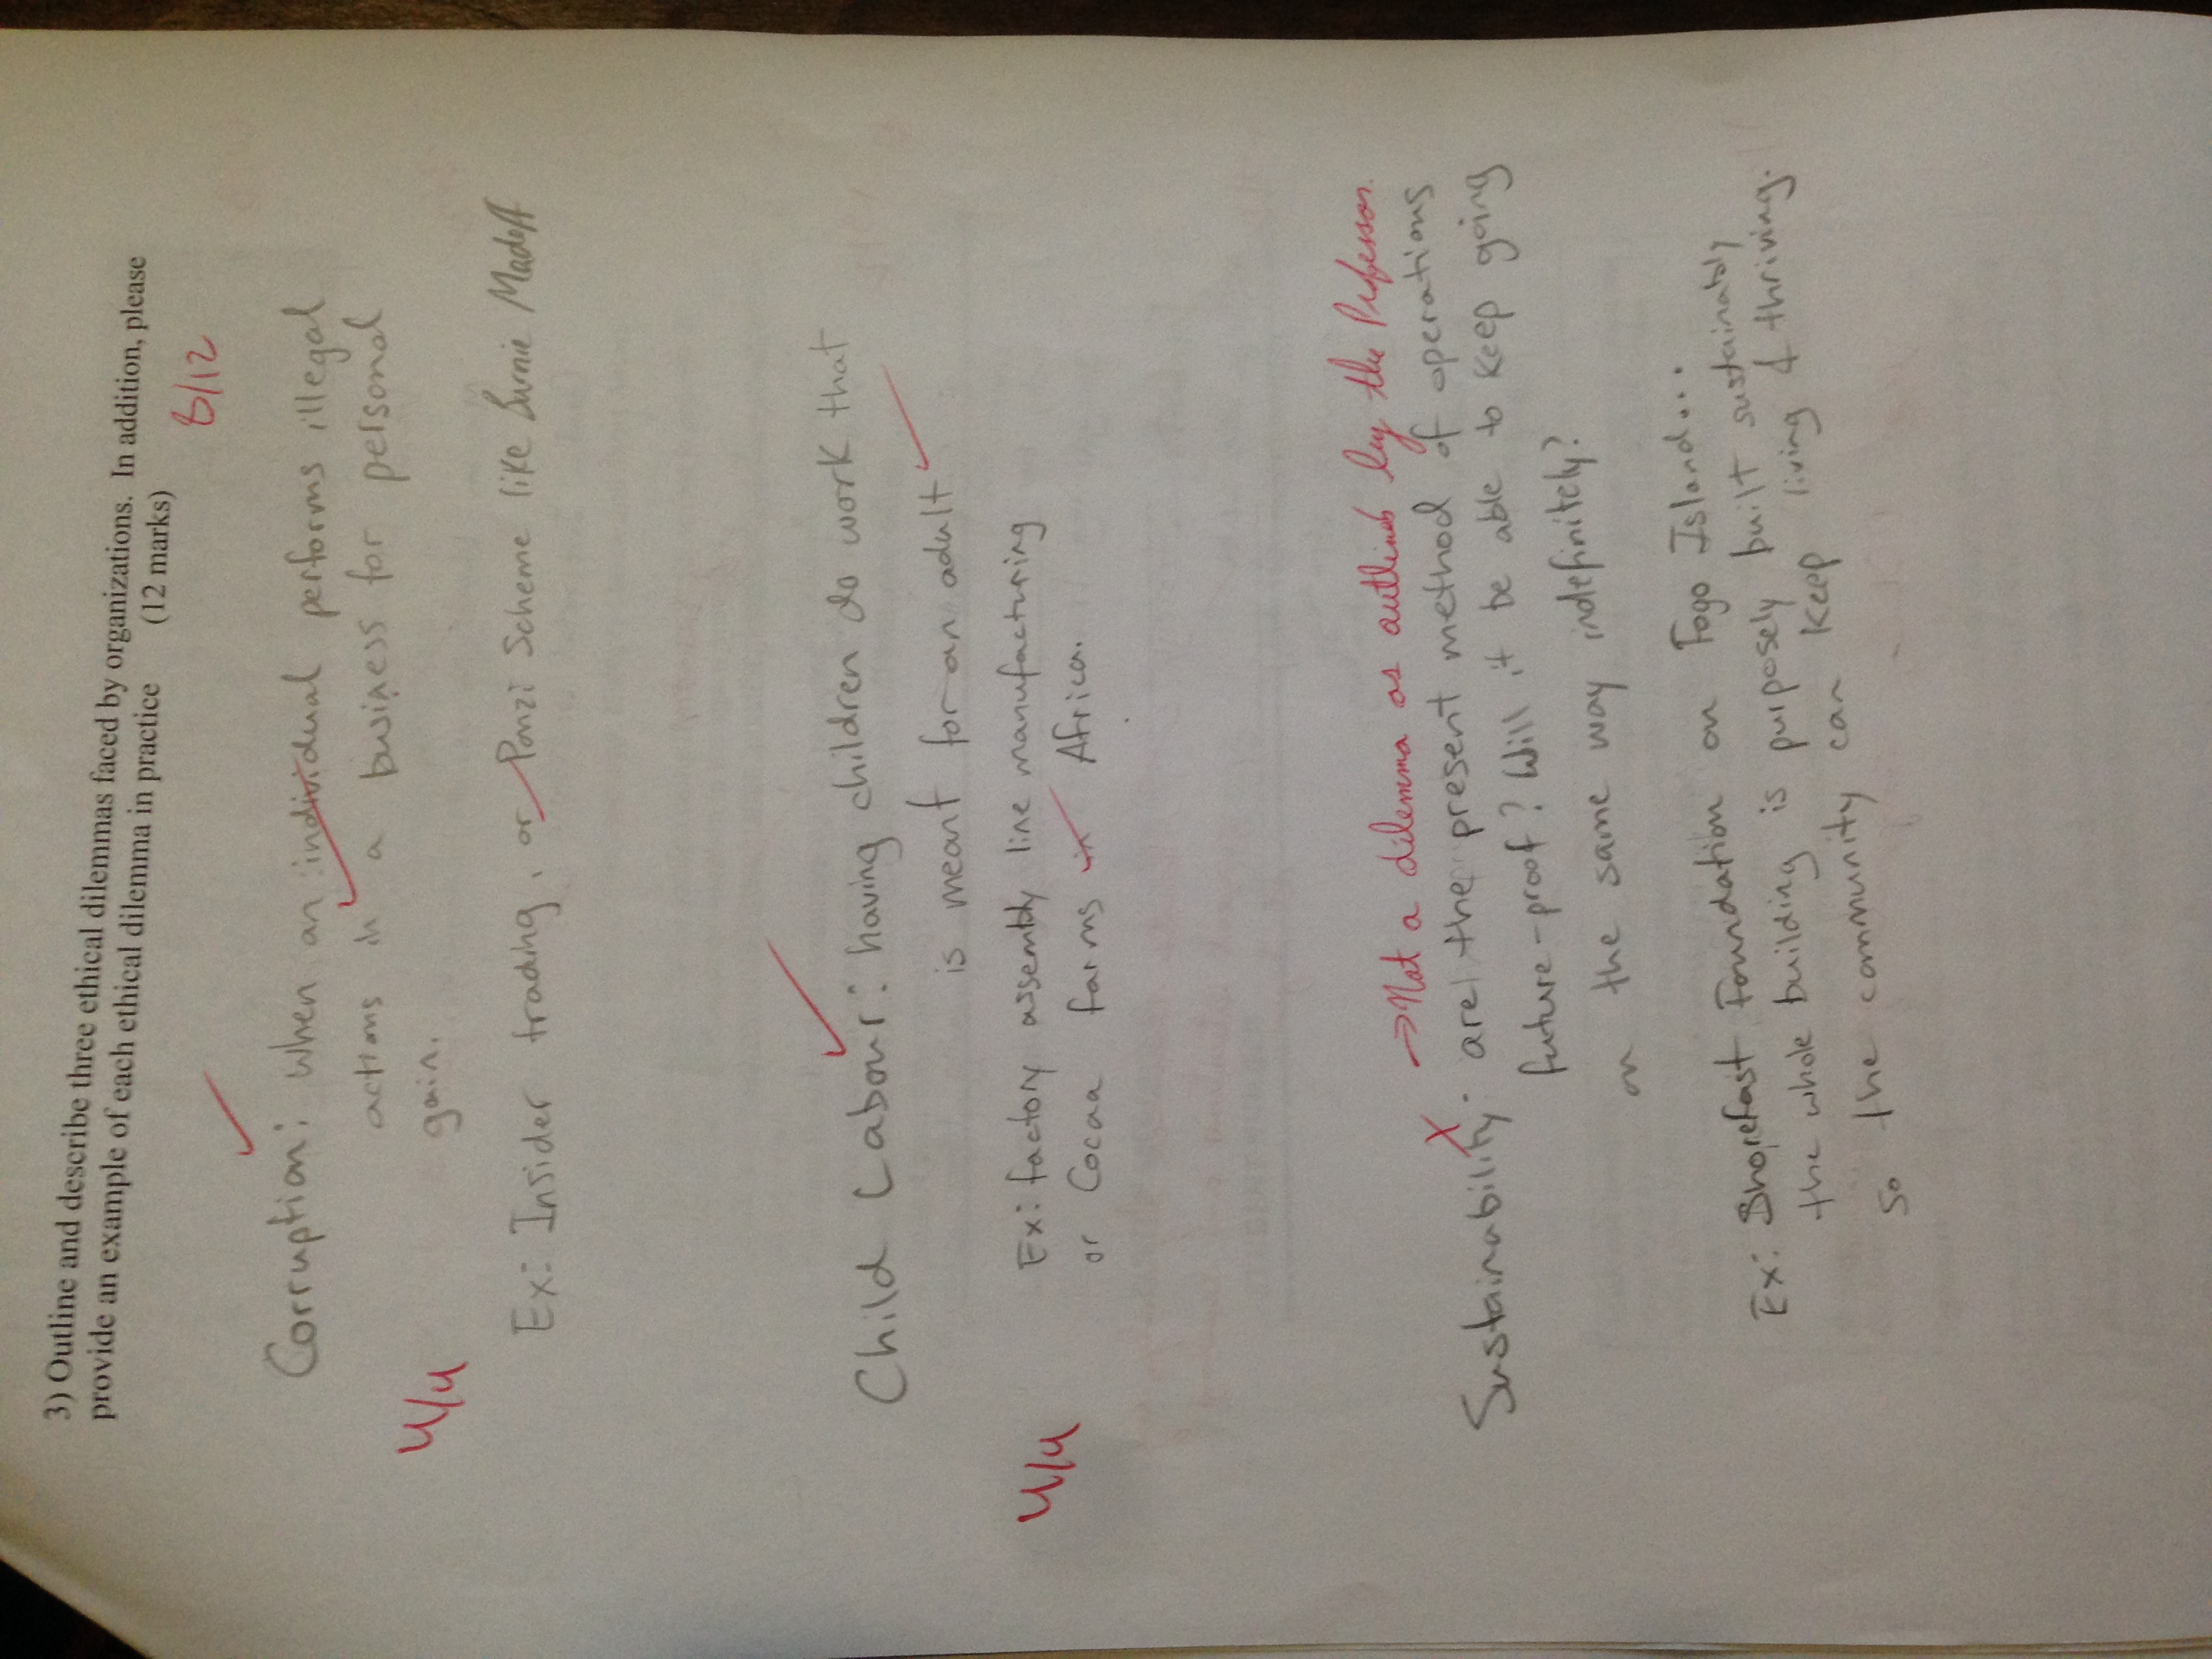 3) Outline and describe three ethical dilemmas faced by organizations. In addition, please
provide an example of each ethical dilemma in practice (12 marks)
8/12
Corruption: When an individual performs illegal
actions in a business for personal
gain.
4/4
Ex: Insider trading, or Ponzi Scheme like Burnie Madoff
Child Labour: having children do work that
is meant for an adult
4/4
Ex: factory assembly line manufacturing
or Cocaa farms in Africa.
→ Not a dilema as outlined by the Professor.
Sustainability: are the present method of operations
future-proof? Will it be able to keep going
on the same way indefinitely?
Ex: Shorefast Foundation on Fogo Island...
the whole building is purposely built sustainably
so the community can keep living & thriving.